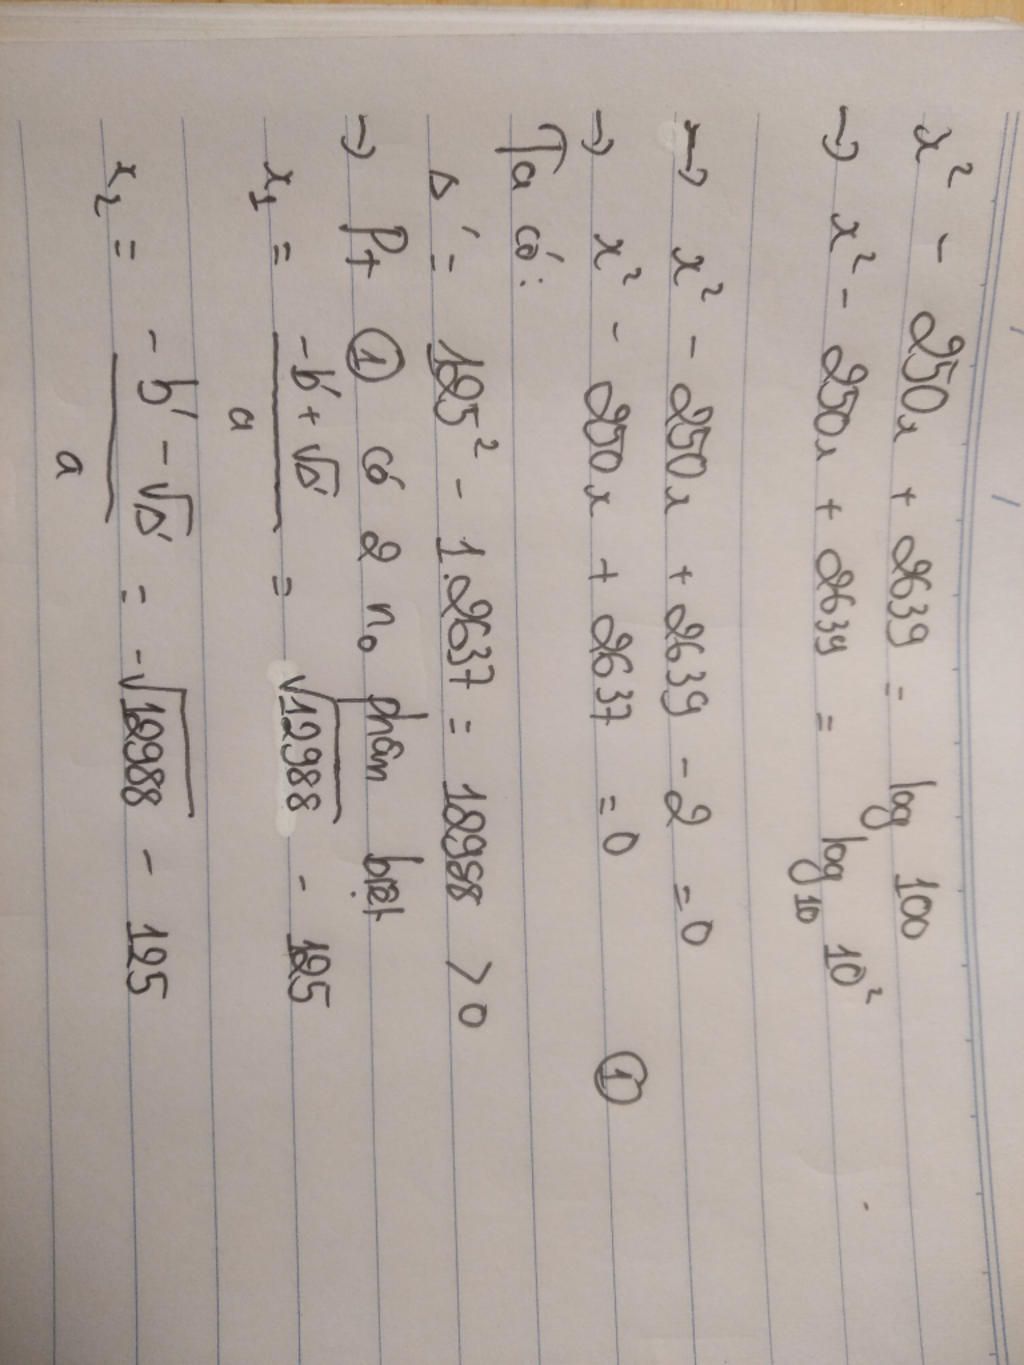 x² - 250x + 2639 = log 100
→ x² - 250x + 2639 = log₁₀ 10²
→ x² - 250x + 2639 - 2 = 0
→ x² - 250x + 2637 = 0 ①
Ta có:
Δ' = 125² - 1.2637 = 12988 > 0
→ Pt ① có 2 n₀ phân biệt
x₁ = (-b' + √Δ')/a = √12988 - 125
x₂ = (-b' - √Δ')/a = -√12988 - 125